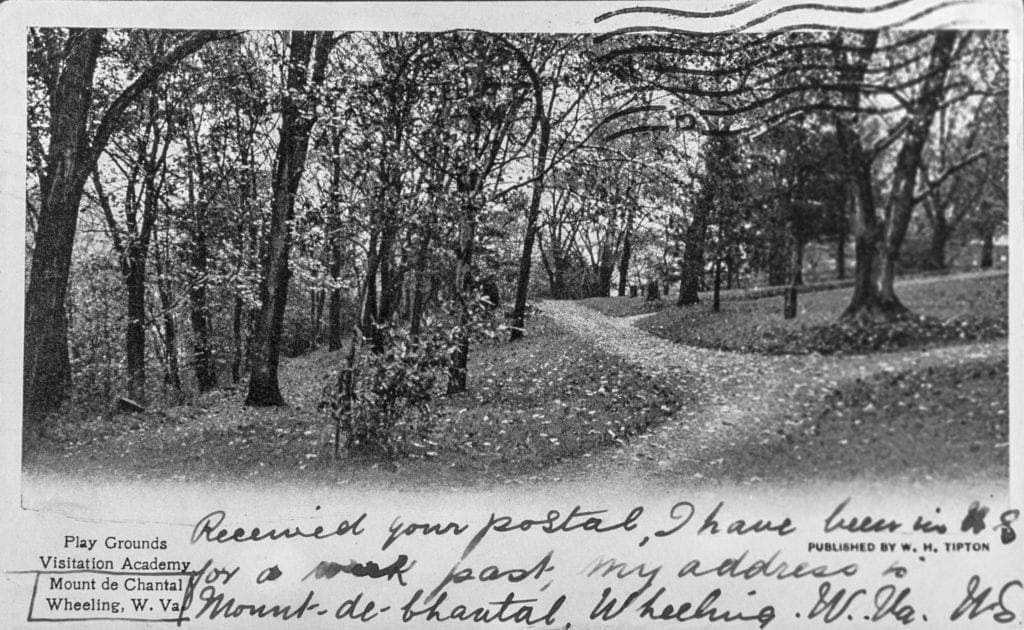 Received your postal, I have been in U S
PUBLISHED BY W. H. TIPTON
for a week past, my address is
Mount-de-Chantal, Wheeling. W. Va. U.S.
Play Grounds
Visitation Academy
Mount de Chantal
Wheeling, W. Va.